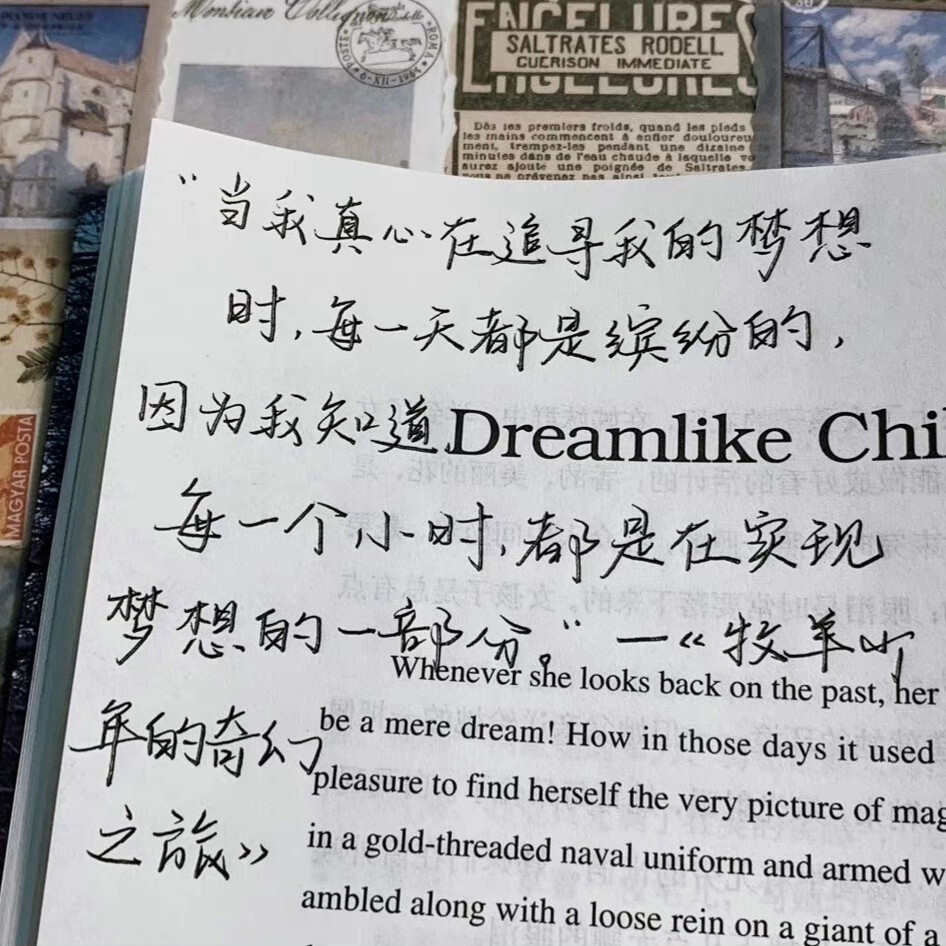 Monsieur Collignon
POSTE ROMA
6-XII-1961
ENGELURES
SALTRATES RODELL
GUERISON IMMEDIATE
ENGELURES
Dès les premiers froids, quand les pieds
les mains commencent à enfler douloureu
ment, trempez-les pendant une dizaine
minutes dans de l'eau chaude à laquelle vo
aurez ajouté une poignée de Saltrates.
MAGYAR POSTA
“当我真心在追寻我的梦想
时,每一天都是缤纷的,
因为我知道,
Dreamlike Chi
每一个小时,都是在实现
梦想的一部分。”一《牧羊少
年的奇幻
之旅》
Whenever she looks back on the past, her
be a mere dream! How in those days it used
pleasure to find herself the very picture of mag
in a gold-threaded naval uniform and armed w
ambled along with a loose rein on a giant of a